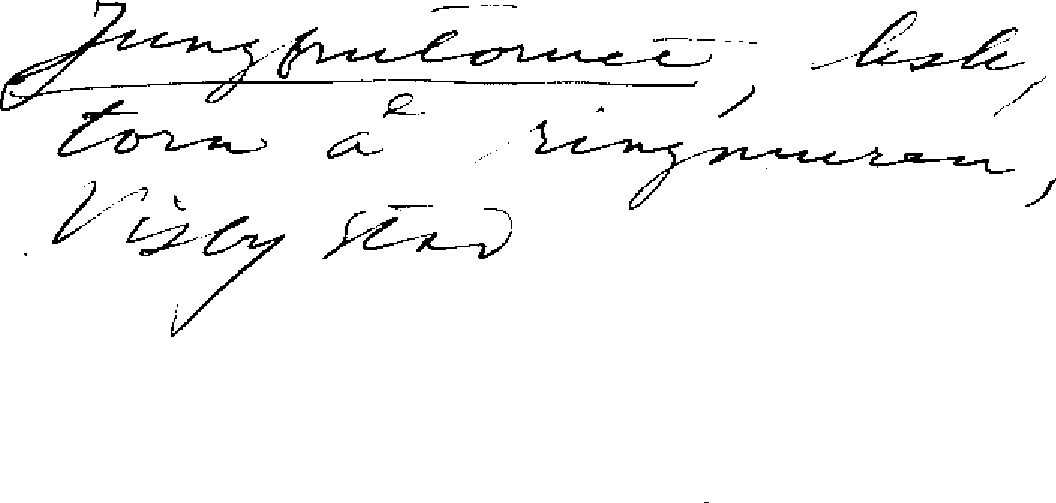 Jungfrutornet, bsk,
torn å ringmuren,
Visby stad